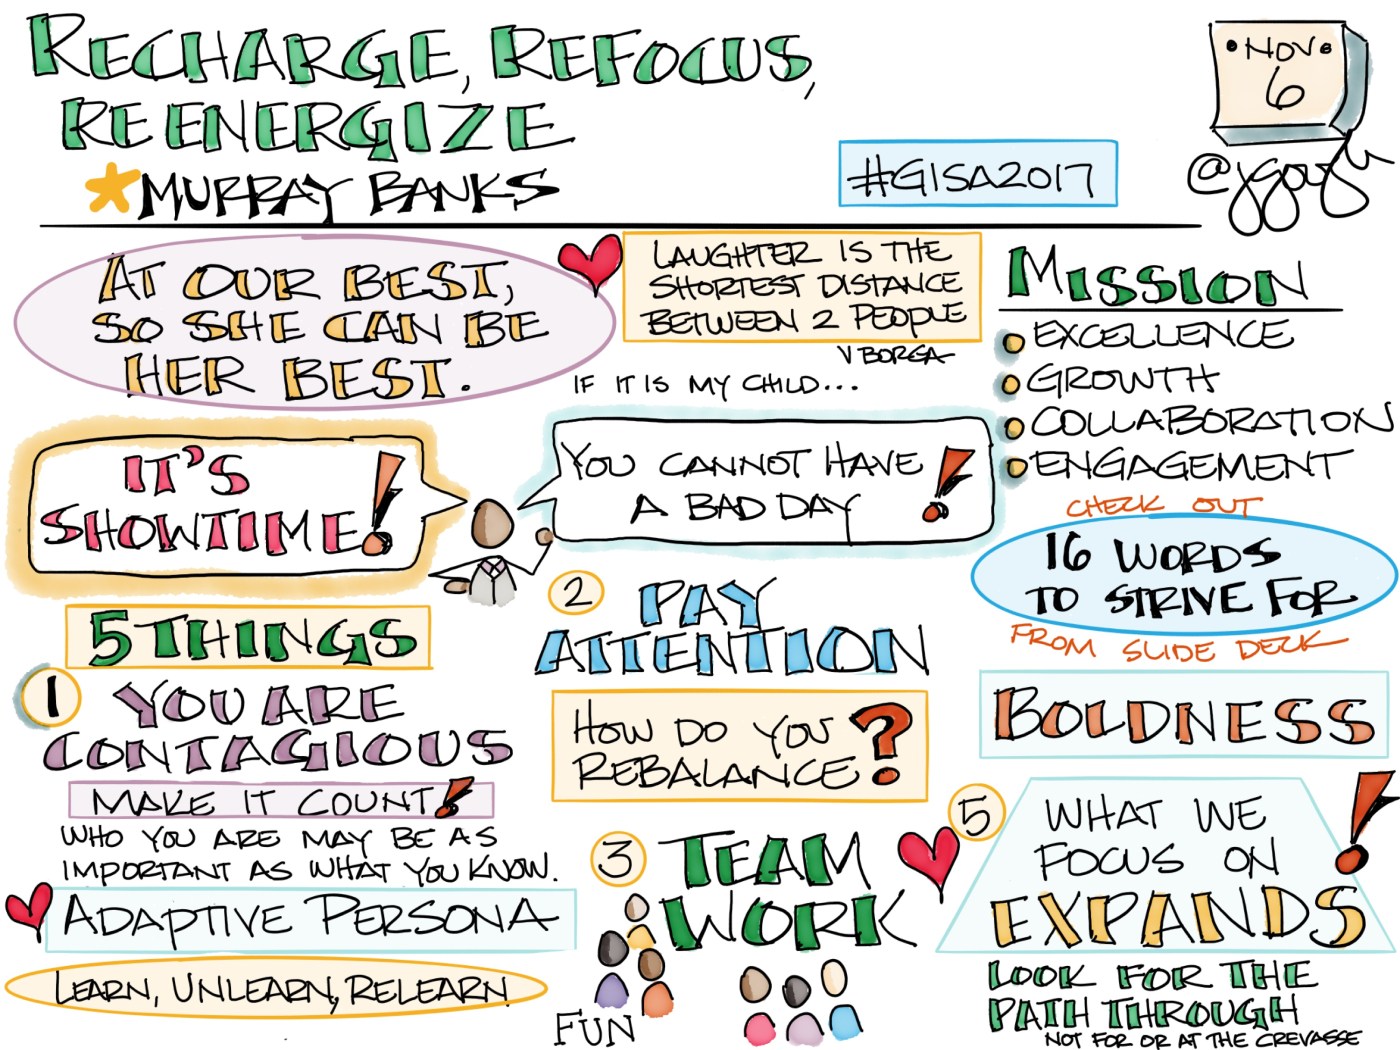 RECHARGE, REFOCUS,
REENERGIZE
*MURRAY BANKS
#GISA2017
•NOV•
6
@jgough
AT OUR BEST,
SO SHE CAN BE
HER BEST.
LAUGHTER IS THE
SHORTEST DISTANCE
BETWEEN 2 PEOPLE
V BORGA
IF IT IS MY CHILD...
IT'S
SHOWTIME!
YOU CANNOT HAVE
A BAD DAY!
MISSION
EXCELLENCE
GROWTH
COLLABORATION
ENGAGEMENT
CHECK OUT
16 WORDS
TO STRIVE FOR
FROM SLIDE DECK
BOLDNESS
5 THINGS
1 YOU ARE
CONTAGIOUS
MAKE IT COUNT!
WHO YOU ARE MAY BE AS
IMPORTANT AS WHAT YOU KNOW.
ADAPTIVE PERSONA
LEARN, UNLEARN, RELEARN
2 PAY
ATTENTION
HOW DO YOU
REBALANCE?
3 TEAM
WORK
FUN
5 WHAT WE
FOCUS ON
EXPANDS!
LOOK FOR THE
PATH THROUGH
NOT FOR OR AT THE CREVASSE